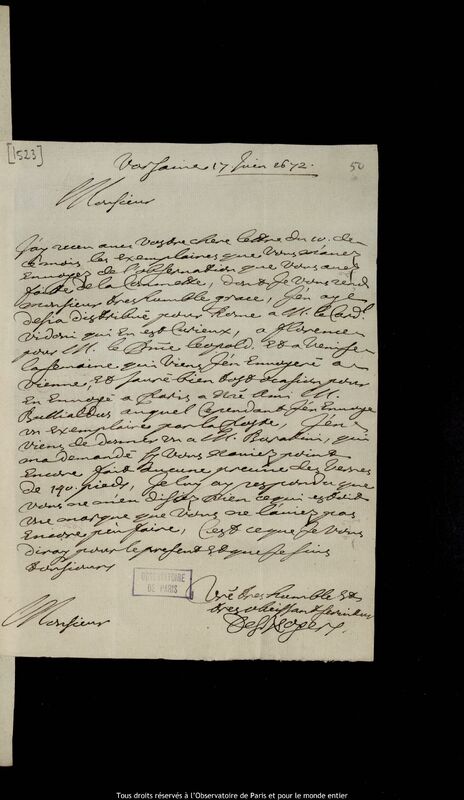 [1523]
50
Varsavie 17 Juin 1672.
Monsieur
J'ay receu avec vostre chere lettre du 10. de
ce mois les exemplaires que vous m'avez
Envoyez de l'observation que vous avez
faite de la Comette, dont je vous rend
Monsieur tres humble grace, j'en ay
desia distribué pour Rome a M. le Card.l
Vidoni qui en est curieux, a florence
pour M. le Prince Leopold. Et a Venise
la semaine qui vient j'en Envoyeré a
Vienne, Et sauré bien tost ocasion pour
en Envoyé a Paris a M.
Bullialdus auquel cependant j'en Envoye
un exemplaire par la Poste, j'en
viens de donner un a M. Buratini, qui
m'a demandé sy vous n'aviez point
Encore fait aucune preuve des verres
de 140. pieds, je luy ay respondu que
vous ne m'en disiez rien ce qui estoit
une marque que vous ne l'aviez pas
Encore pû faire, C'est ce que je vous
diray pour le present Et que je suis
tousiours
OBSERVATOIRE
DE PARIS
Monsieur
Vré tres humble Et
tres obeissant serviteur
Des Noyers.
Tous droits réservés à l'Observatoire de Paris et pour le monde entier